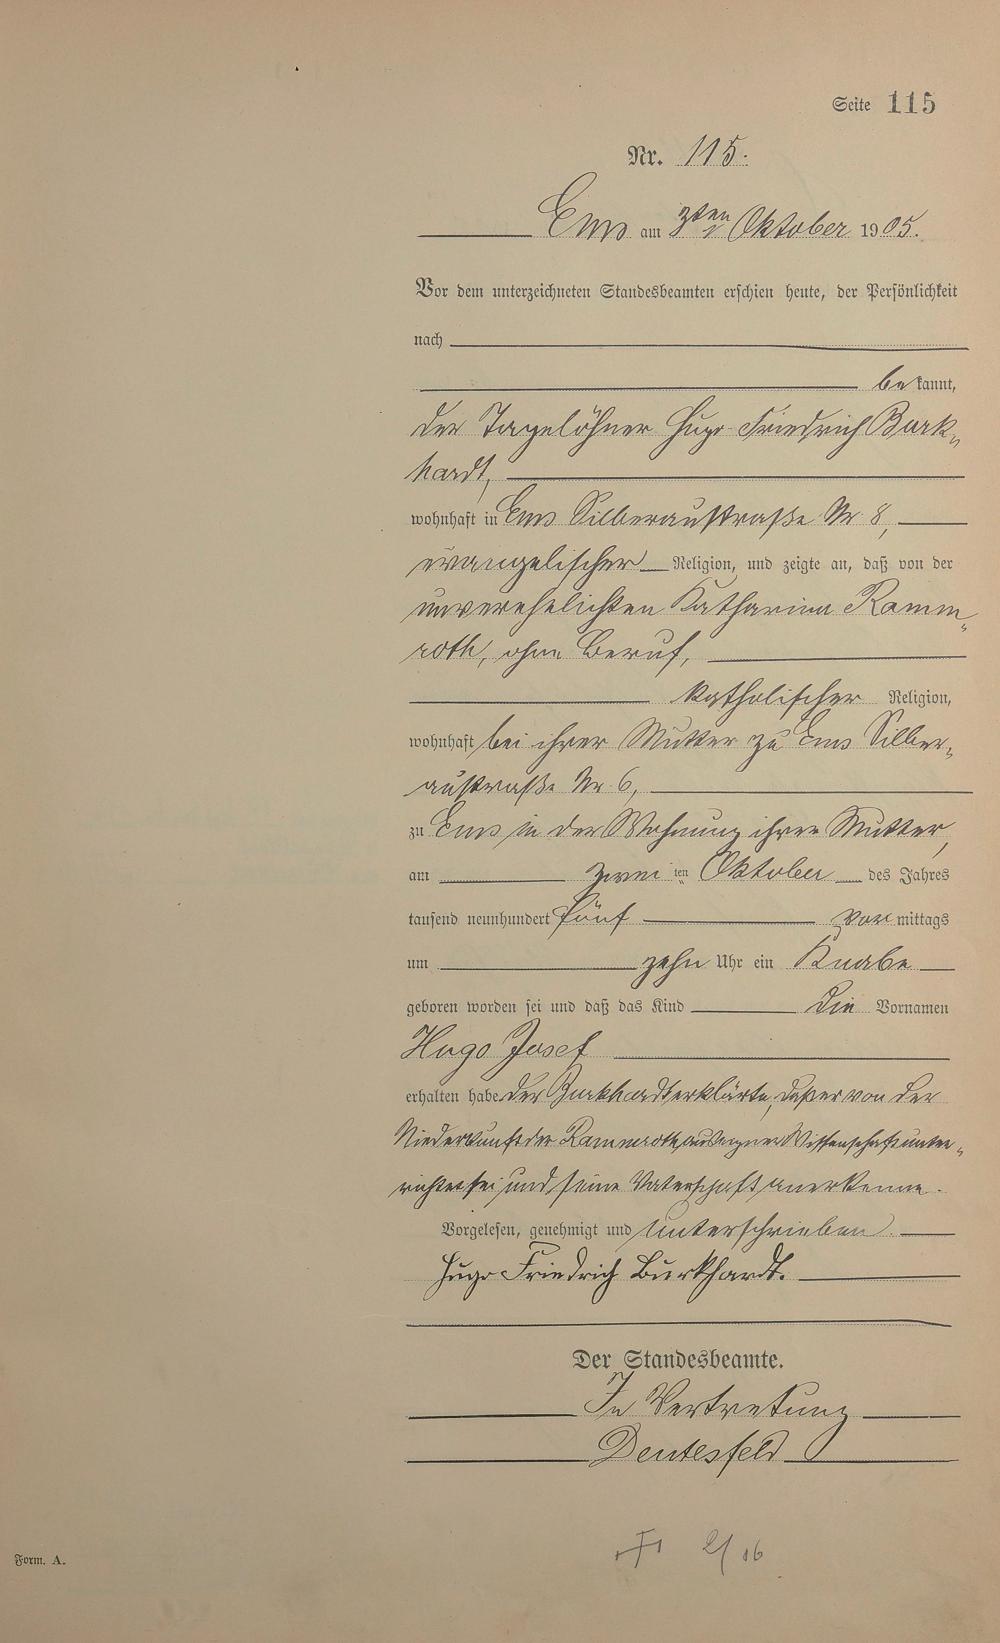 Seite 115
Nr. 115.
Ems am 3ten Oktober 1905.
Vor dem unterzeichneten Standesbeamten erschien heute, der Persönlichkeit
nach
bekannt,
der Tagelöhner Hugo Friedrich Burk„
hardt,
wohnhaft in Ems Silberaustraße Nr 8,
evangelischer Religion, und zeigte an, daß von der
unverehelichten Katharina Ramm„
roth, ohne Beruf,
katholischer Religion,
wohnhaft bei ihrer Mutter zu Ems Silber„
austraße Nr 6,
zu Ems in der Wohnung ihrer Mutter,
am zweiten Oktober des Jahres
tausend neunhundert fünf vormittags
um zehn Uhr ein Knabe
geboren worden sei und daß das Kind die Vornamen
Hugo Josef
erhalten habe der Burkhardt erklärte, daß er von der
Niederkunft der Rammroth aus eigner Wissenschaft unter„
richtet sei und seine Vaterschaft anerkenne.
Vorgelesen, genehmigt und unterschrieben.
Hugo Friedrich Burkhardt.
Der Standesbeamte.
In Vertretung
Deutesfeld
Form. A.